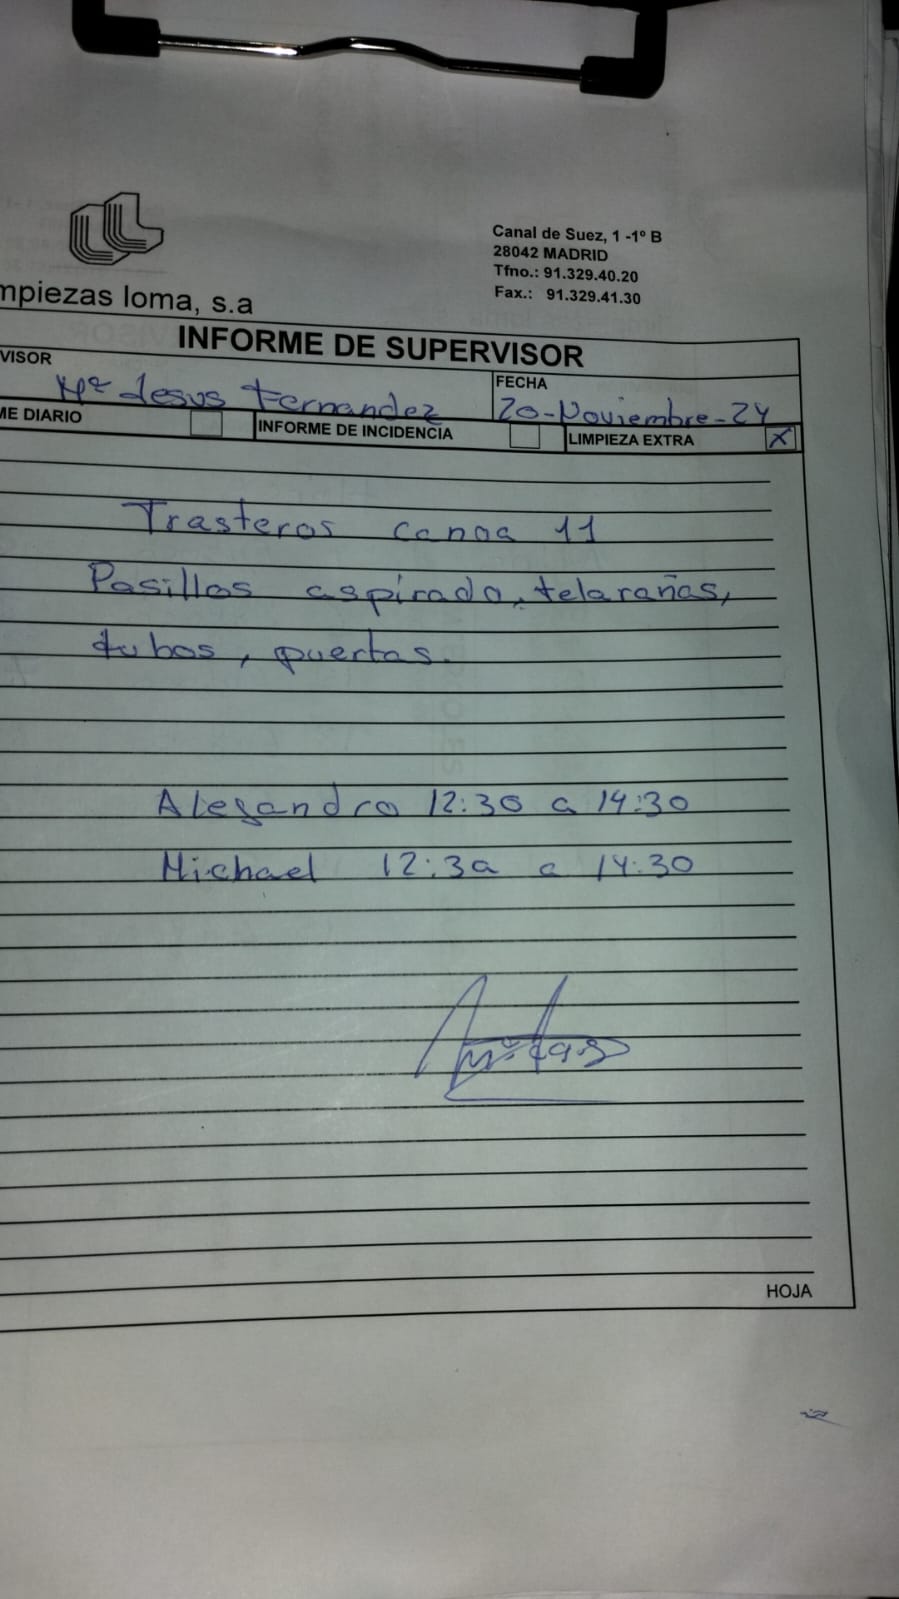 Canal de Suez, 1 -1º B
28042 MADRID
Tfno.: 91.329.40.20
Fax.: 91.329.41.30
mpiezas loma, s.a
INFORME DE SUPERVISOR
VISOR
Mª Jesus Fernandez
FECHA
20-Noviembre-24
ME DIARIO
INFORME DE INCIDENCIA
LIMPIEZA EXTRA X
Trasteros canoa 11
Pasillos aspirado, telarañas,
tubos, puertas.
Alejandro 12:30 a 14:30
Michael 12:30 a 14:30
HOJA